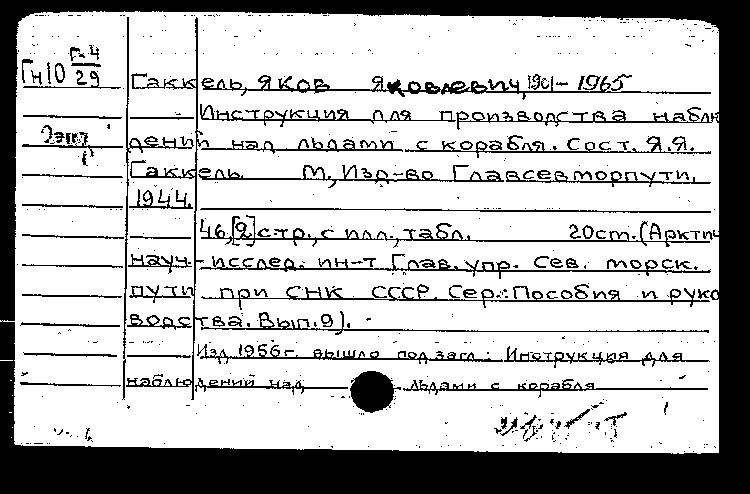 Гн10 Г-4
29
Гаккель, Яков Яковлевич, 1901-1965
Инструкция для производства наблю
2экз
дений над льдами с корабля. Сост. Я.Я.
Гаккель. М., Изд-во Главсевморпути,
1944.
46,[2]стр., с илл., табл. 20cm.(Арктич
науч.-исслед. ин-т Глав. упр. Сев. морск.
пути при СНК СССР. Сер.:Пособия и руко
водства. Вып.9).
Изд 1956г. вышло под загл.: Инструкция для
наблюдений над льдами с корабля